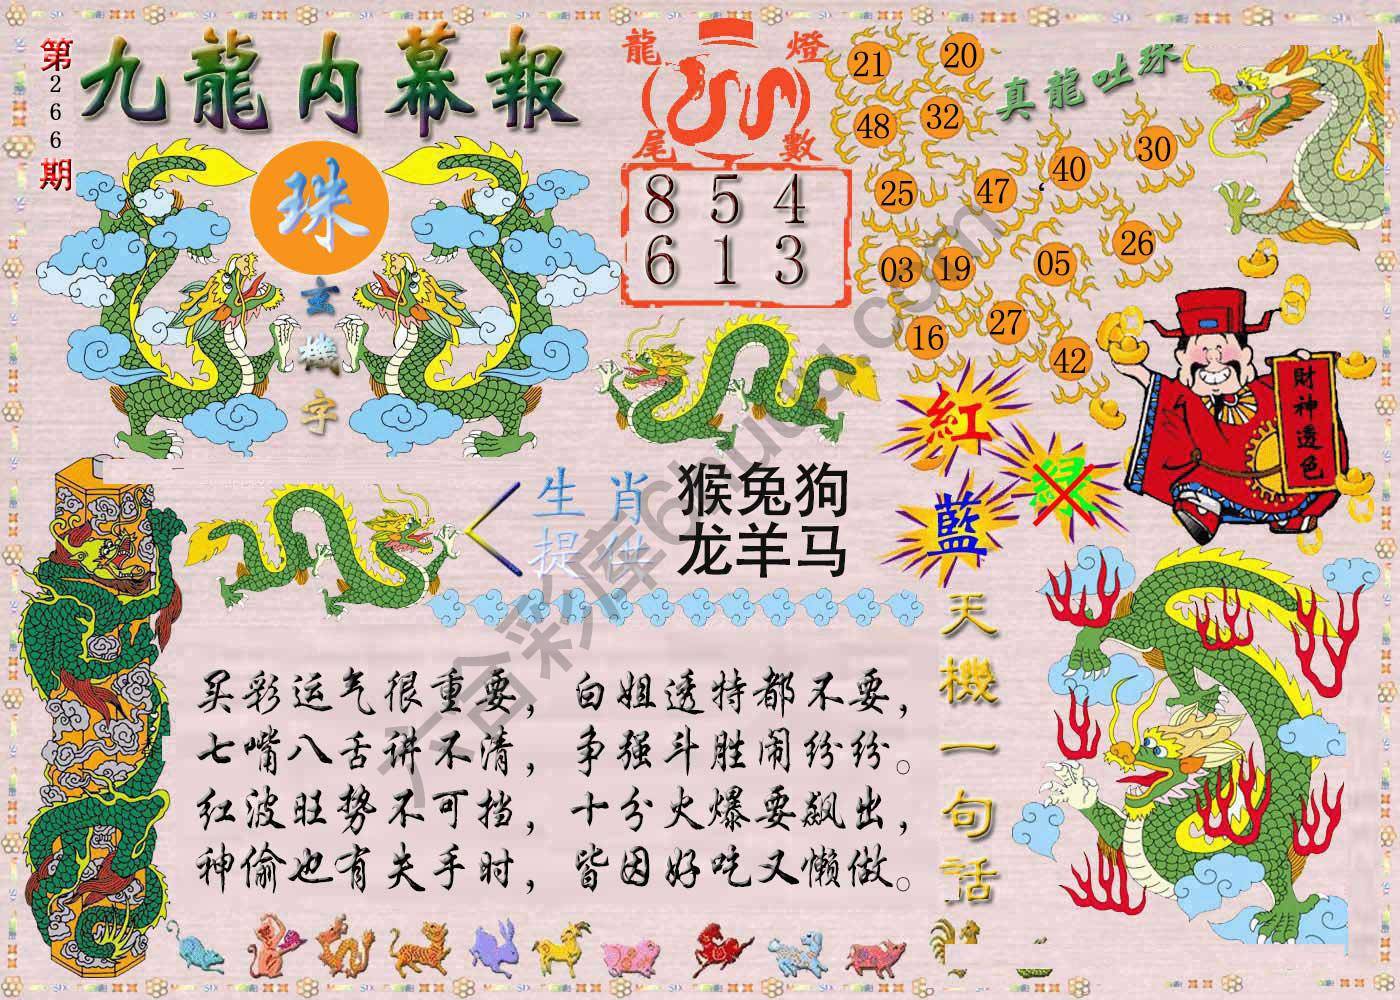 第266期
九龍内幕報
珠
玄機字
龍燈
尾數
8 5 4
6 1 3
真龍吐珠
21 20
48 32
25 47 40 30
03 19 05 26
16 27 42
財神透色
紅
綠
藍
生肖
提供
猴兔狗
龙羊马
天機一句话
买彩运气很重要，白姐透特都不要，
七嘴八舌讲不清，争强斗胜闹纷纷。
红波旺势不可挡，十分火爆要飙出，
神偷也有失手时，皆因好吃又懒做。
六合彩库6huua.com